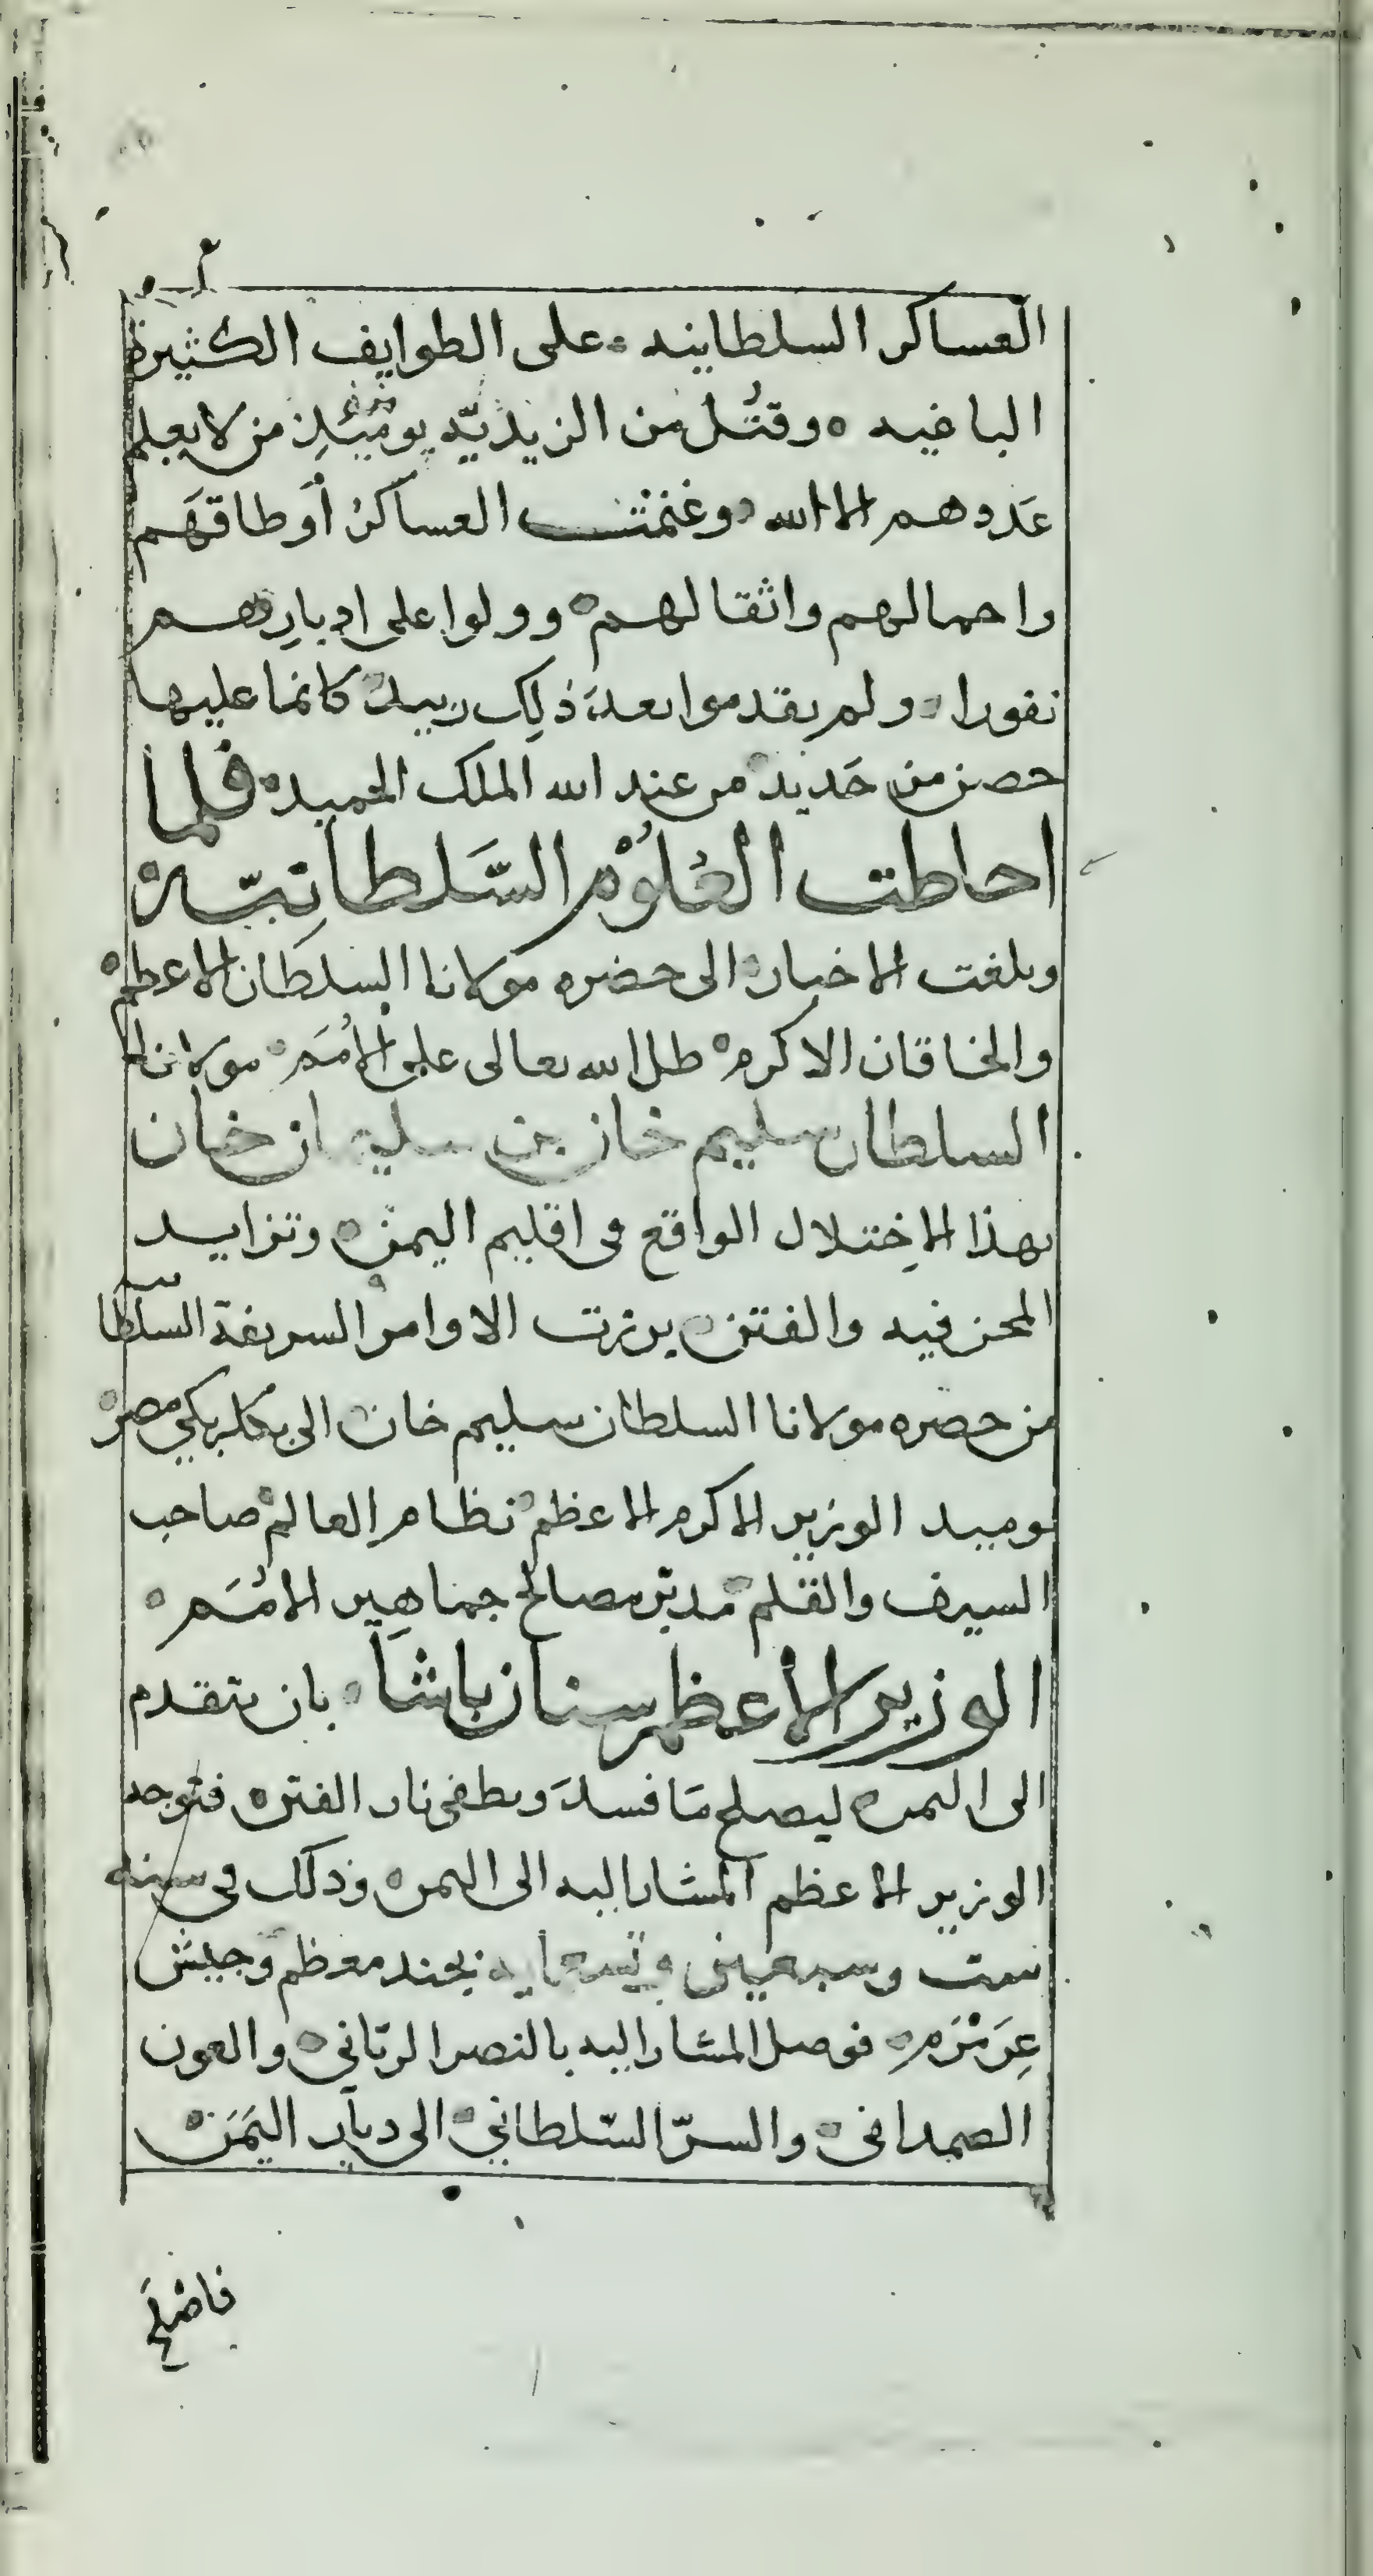 العساكر السلطانيه على الطوايف الكثيرة
الباغيه وقتل من الزيديّه يوميذ من لا يعلم
عددهم الا الله وغنمت العساكر أوطاقهم
واحمالهم واثقالهم وولوا على ادبارهم
نفورا ولم يقدموا بعد ذلك زبيد كانما عليها
حصن من حديد من عند الله الملك الحميد فلما
احاطت العلوم السلطانيّه
وبلغت الاخبار الى حضره مولانا السلطان الاعظم
والخاقان الاكرم ظل الله تعالى على الأمم مولانا
السلطان سليم خان بن سليمان خان
بهذا الاختلال الواقع في اقليم اليمن وتزايد
المحن فيه والفتن برزت الاوامر الشريفة السلطا
نيه
من حضره مولانا السلطان سليم خان الى بكلربكي مصر
يوميد الوزير الاكرم الاعظم نظام العالم صاحب
السيف والقلم مدبّر مصالح جماهير الامم
الوزير الأعظم سنان باشا بان يتقدم
الى اليمن ليصلح ما فسد ويطفى نار الفتن فتوجه
الوزير الاعظم المشار اليه الى اليمن وذلك في سنه
ست وسبعين وتسعمايه بجند معظم وجيش
عرمرم فوصل المشار اليه بالنصر الربّاني والعون
الصمداني والسرّ السّلطاني الى ديار اليمن
فاصلح